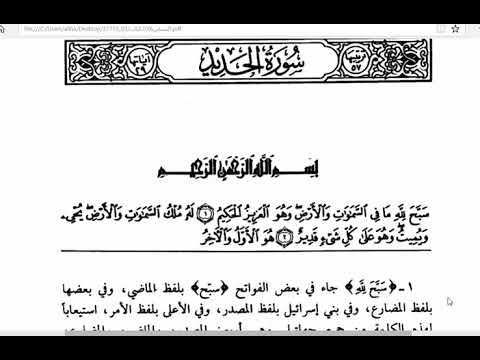 file:///C:/Users/
.pdf
ترتيبها ٥٧
سُورَةُ الحَدِيدِ
آياتها ٢٩
بِسْمِ اللَّهِ الرَّحْمَٰنِ الرَّحِيمِ
سَبَّحَ لِلَّهِ مَا فِي السَّمَٰوَٰتِ وَالْأَرْضِ وَهُوَ الْعَزِيزُ الْحَكِيمُ ١ لَهُ مُلْكُ السَّمَٰوَٰتِ وَالْأَرْضِ يُحْيِۦ
وَيُمِيتُ وَهُوَ عَلَىٰ كُلِّ شَيْءٍ قَدِيرٌ ٢ هُوَ الْأَوَّلُ وَالْآخِرُ
١ - ﴿سَبَّحَ لِلَّهِ﴾ جاء في بعض الفواتح ﴿سبّح﴾ بلفظ الماضي، وفي بعضها
بلفظ المضارع، وفي بني إسرائيل بلفظ المصدر، وفي الأعلى بلفظ الأمر، استيعاباً